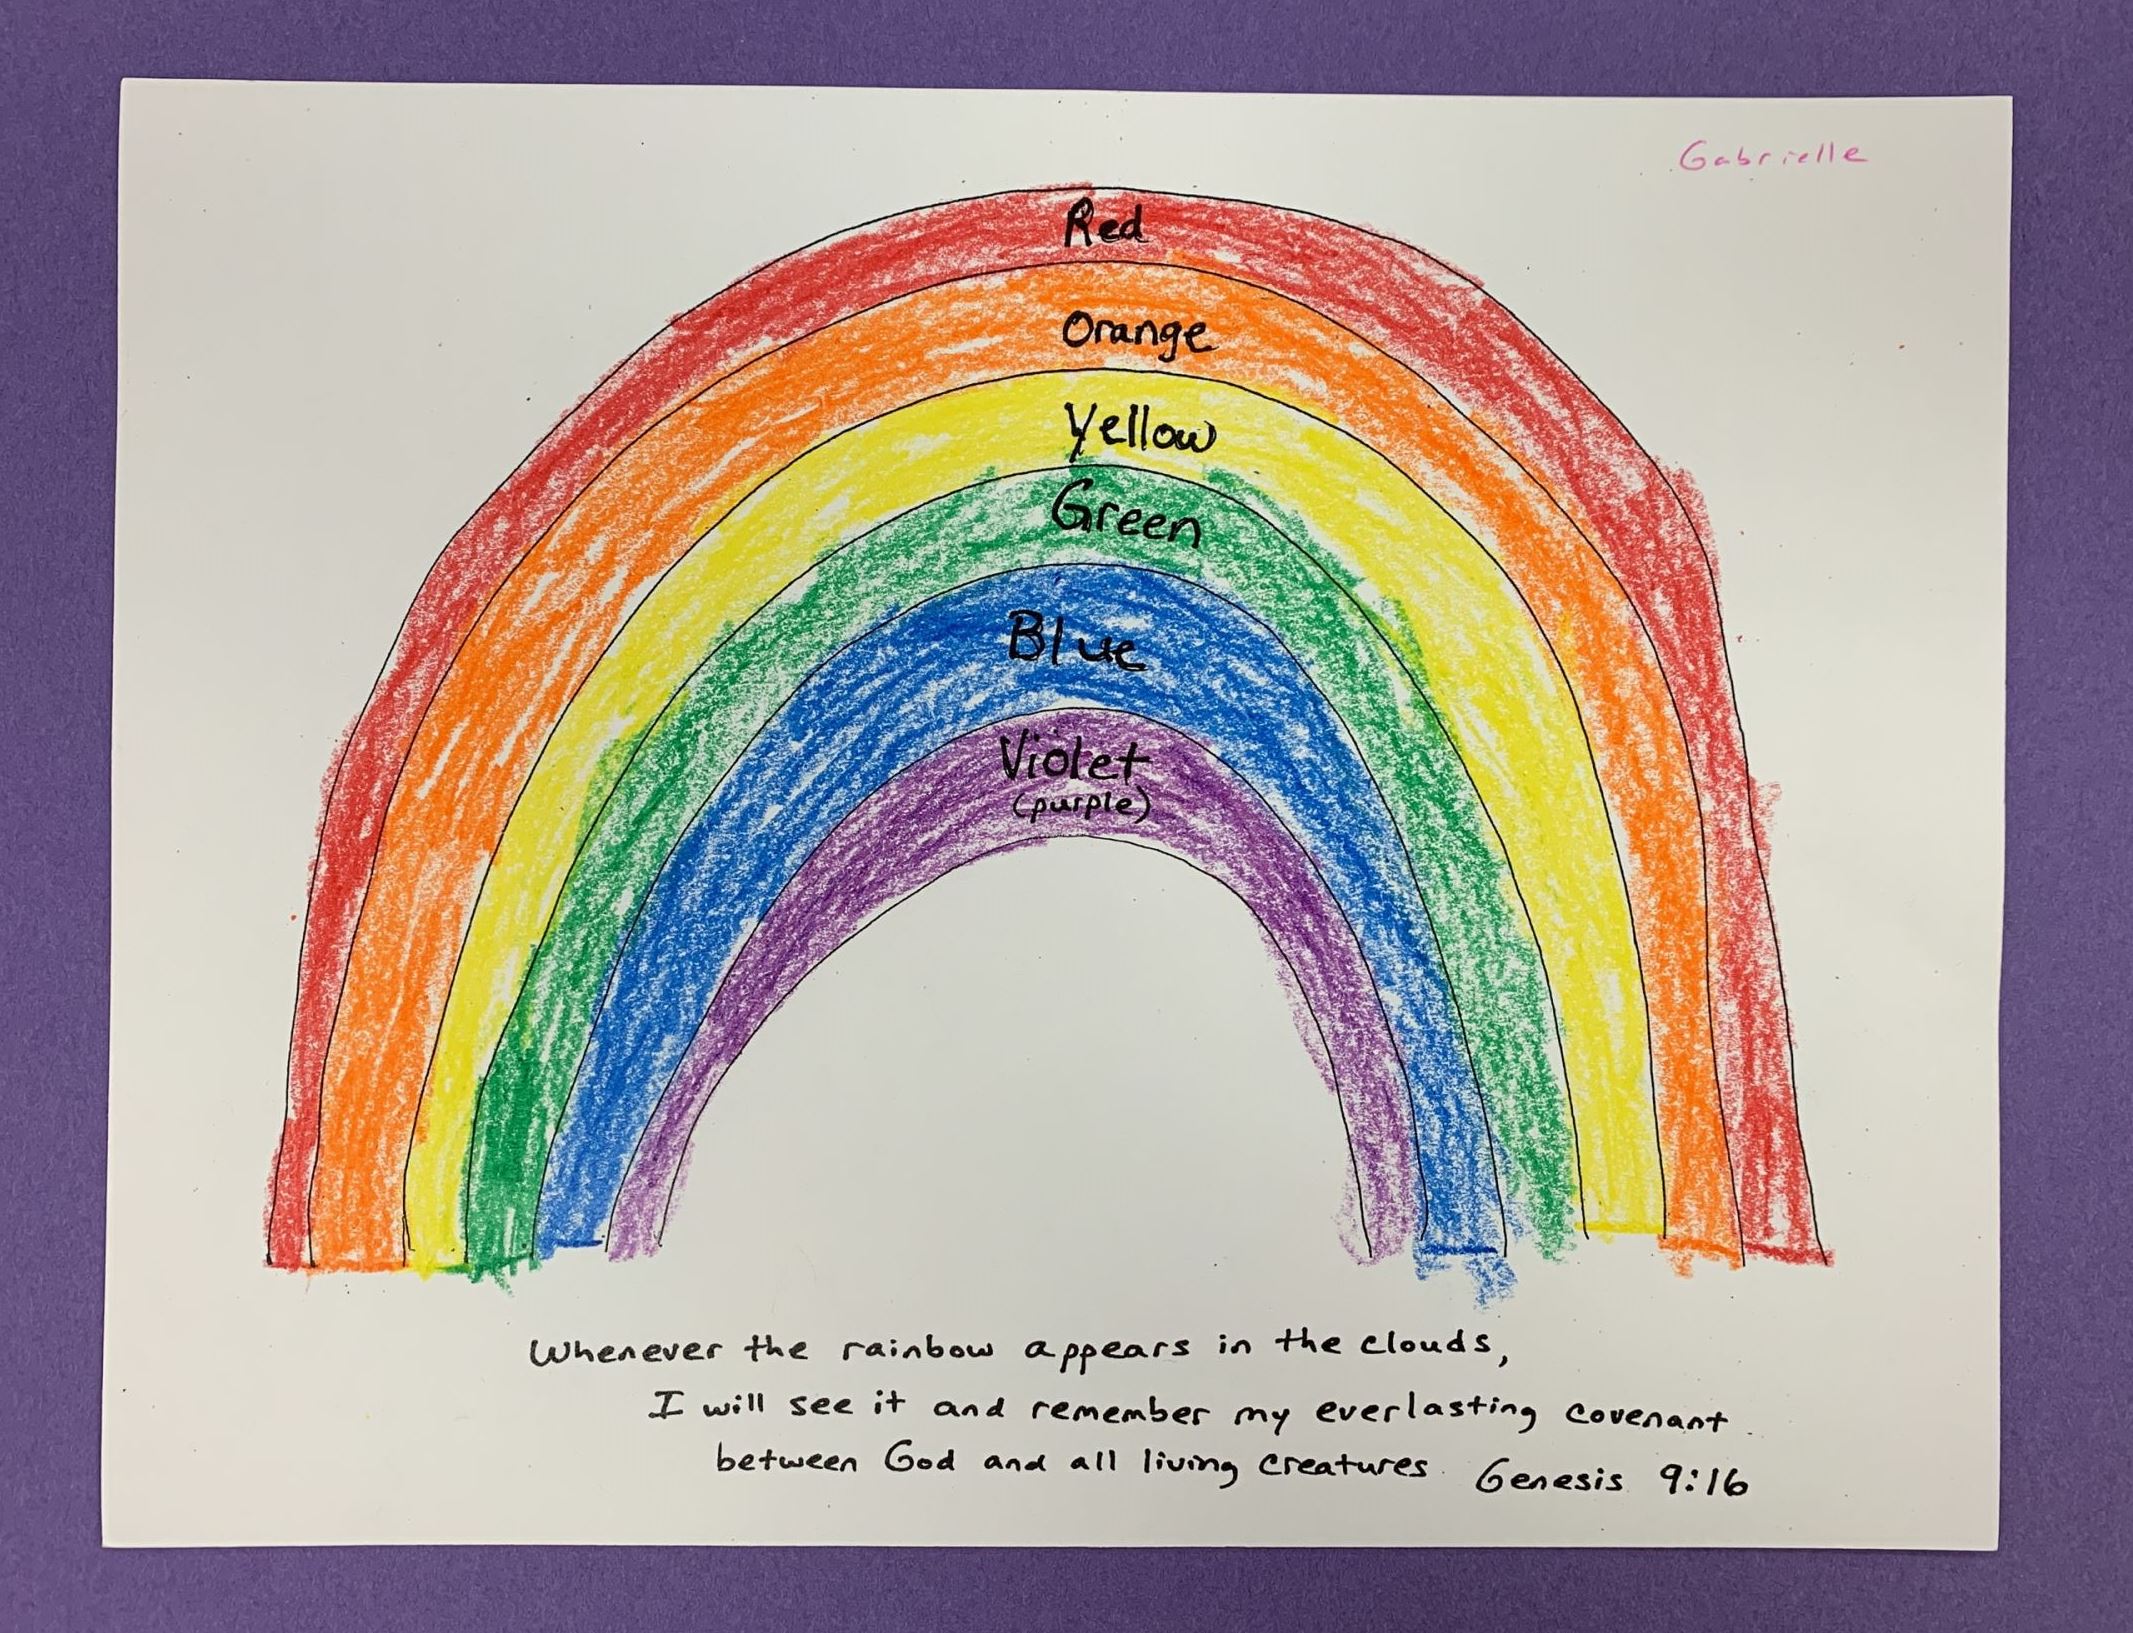 Gabrielle
Red
Orange
Yellow
Green
Blue
Violet
(purple)
Whenever the rainbow appears in the clouds,
I will see it and remember my everlasting covenant
between God and all living creatures. Genesis 9:16